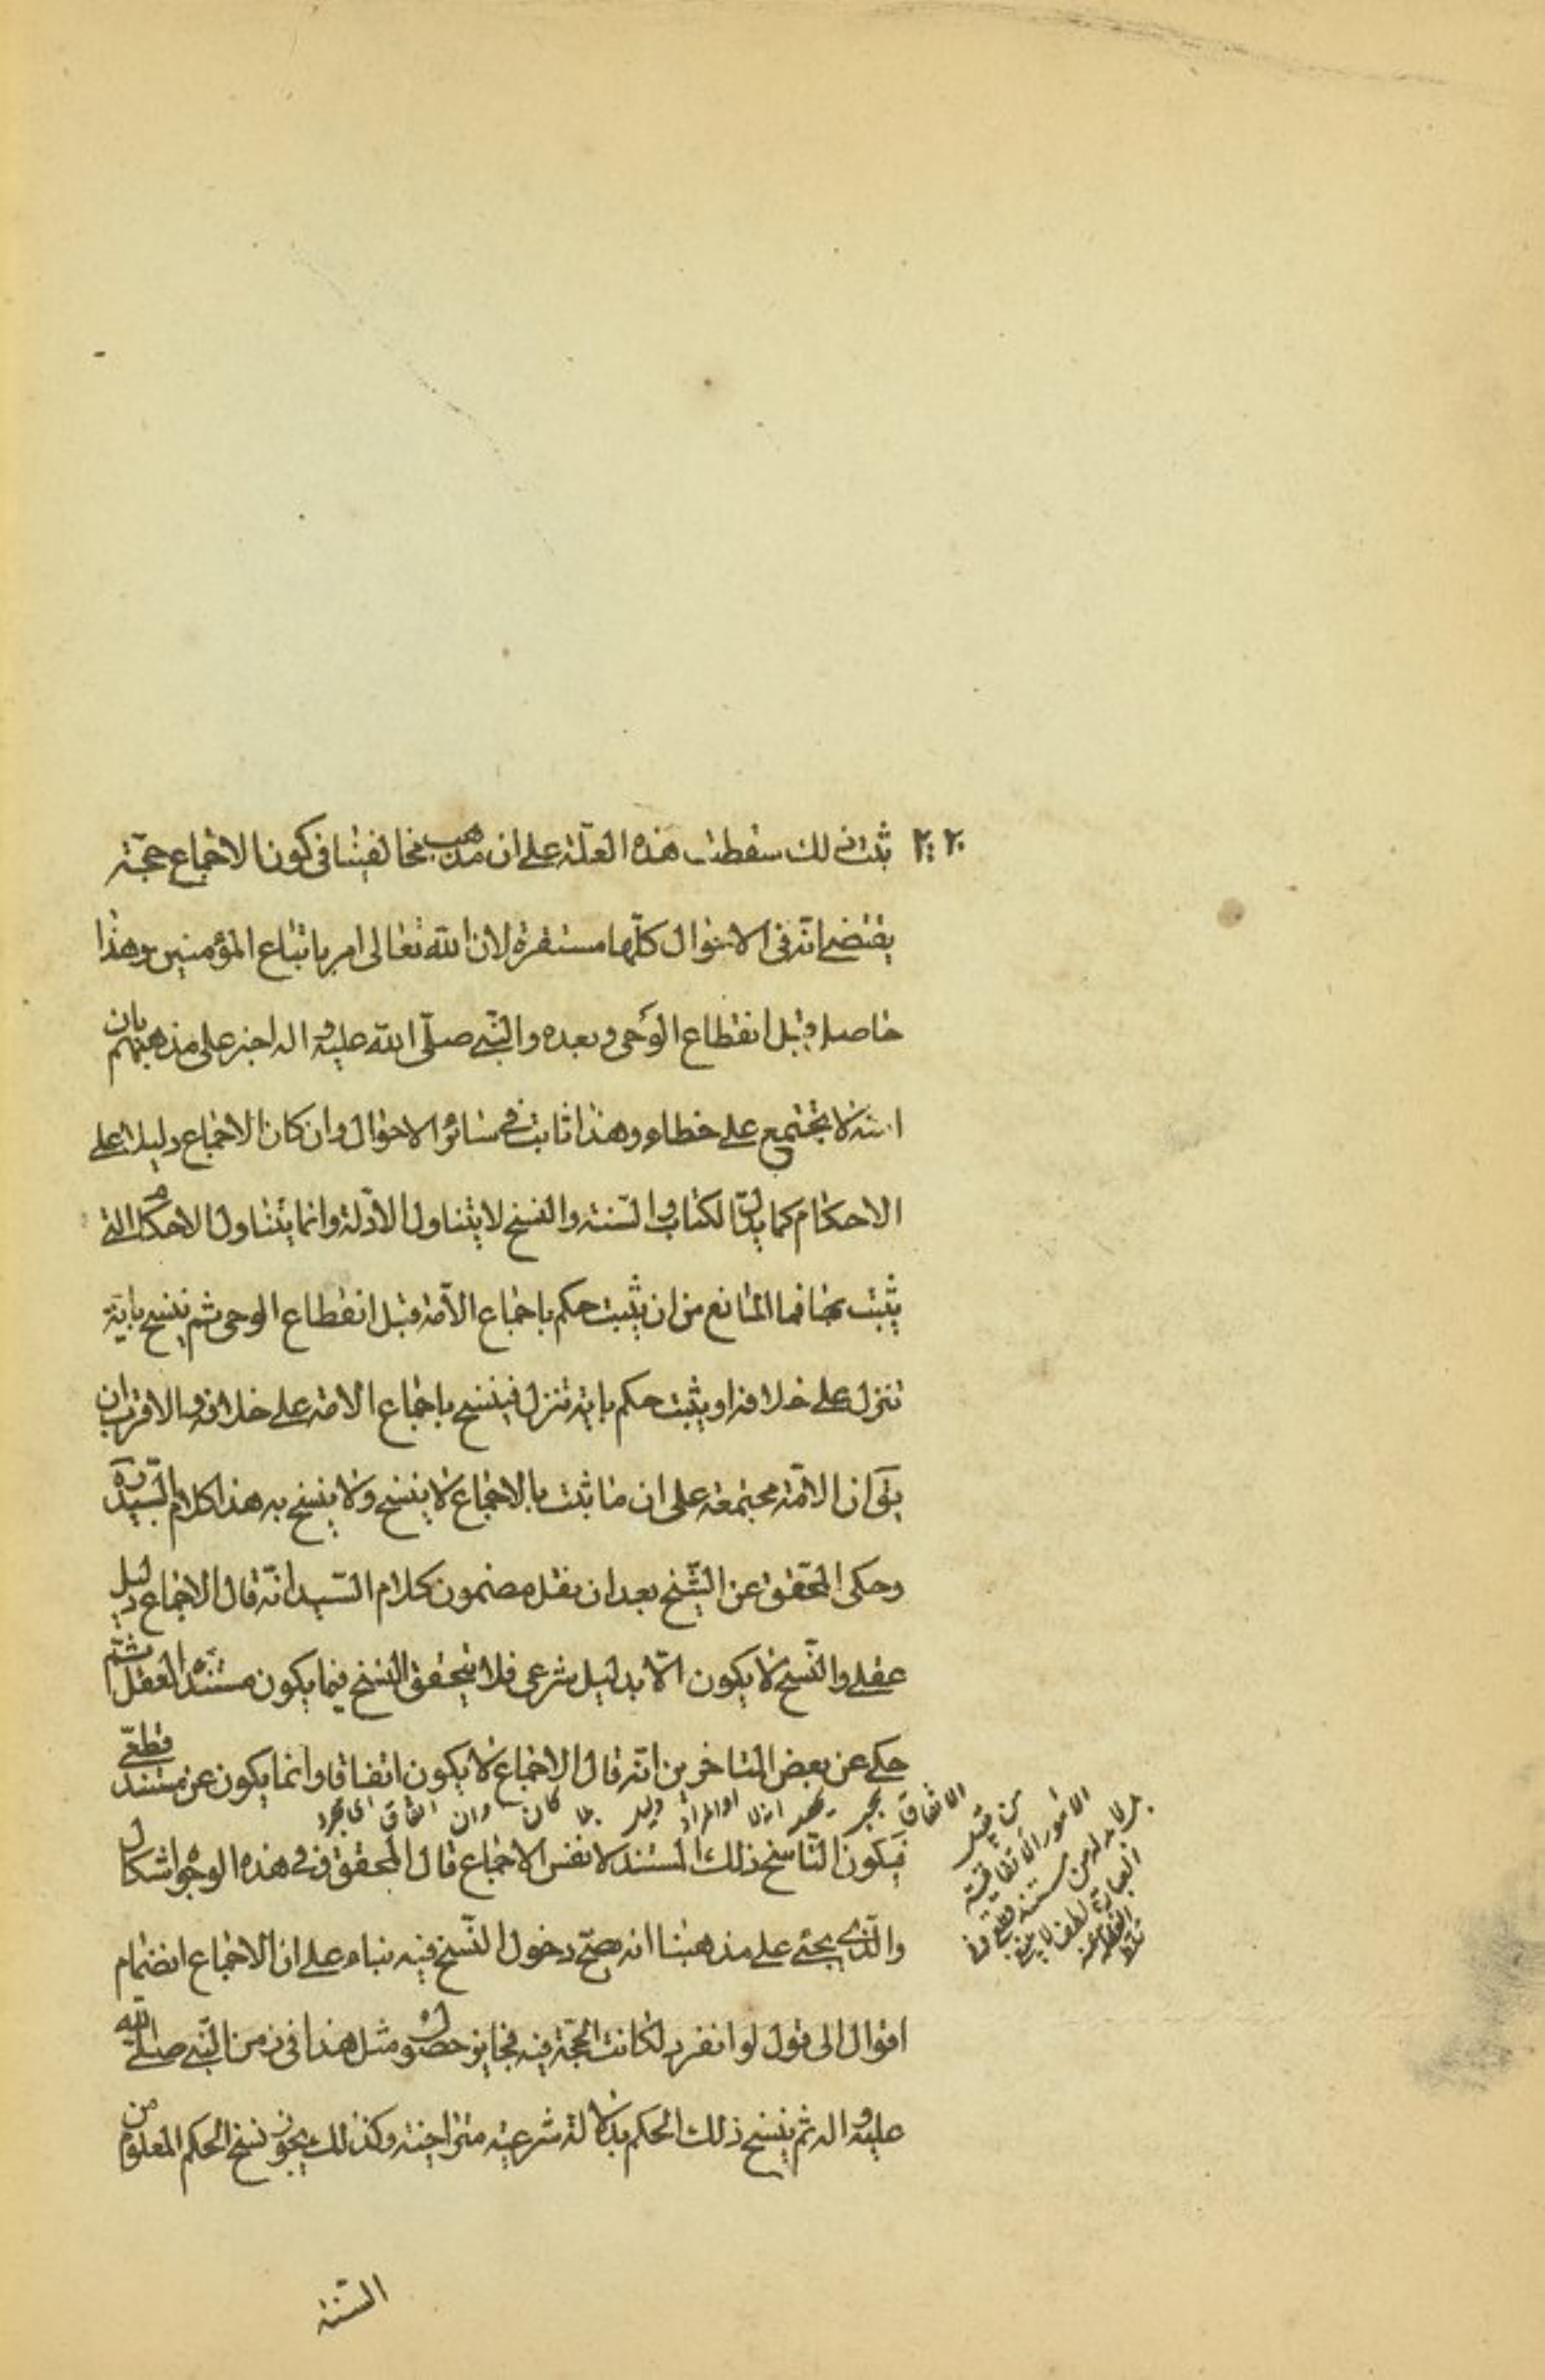 ثبت ذلك سقطت هذه العلّة على ان مذهب مخالفينا فى كون الاجماع حجّة
يقتضى انّه فى الاحوال كلّها مستقرة لان الله تعالى امر باتباع المؤمنين وهذا
حاصل قبل انقطاع الوحى وبعده والنّبى صلّى الله عليه واله اخبر على مذهبهم بان
امّته لا تجتمع على خطاء وهذا ثابت فى سائر الاحوال وان كان الاجماع دليلا على
الاحكام كما يدلّ الكتاب والسّنة والنسخ لا يتناول الادّلة وانما يتناول الاحكام التى
يثبت بها فما المانع من ان يثبت حكم باجماع الامّة قبل انقطاع الوحى ثم ينسخ باية
تنزل على خلافه او يثبت حكم باية تنزل فينسخ باجماع الامة على خلافه والاقرب ان
يقال ان الامّة مجتمعة على ان ما ثبت بالاجماع لا ينسخ ولا ينسخ به هذا كلام السّيد ره
وحكى المحّقق عن الشّيخ بعد ان نقل مضمون كلام السّيد انّه قال الاجماع دليل
عقلى والنّسخ لا يكون الّا بدليل شرعى فلا يتحقق النسخ فيما يكون مستنده العقل ثمّ
حكى عن بعض المتاخرين انّه قال الاجماع لا يكون اتفاقا وانما يكون عن مستند قطعّى
فيكون النّاسخ ذلك المستند لا نفس الاجماع قال المحقق ره وفى هذه الوجوه اشكال
والّذى يجئ على مذهبنا انه يصحّ دخول النّسخ فيه بناء على ان الاجماع انضمام
اقوال الى قول لو انفرد لكانت الحجّة فيه فجايز حصول مثل هذا فى زمن النّبى صلّى الله
عليه واله ثم ينسخ ذلك الحكم بدلالة شرعيّة متراخية وكذلك يجوز نسخ الحكم المعلوم من
الامور الاتفاقية
بل لا بد له من مستند قطعى
السّنة